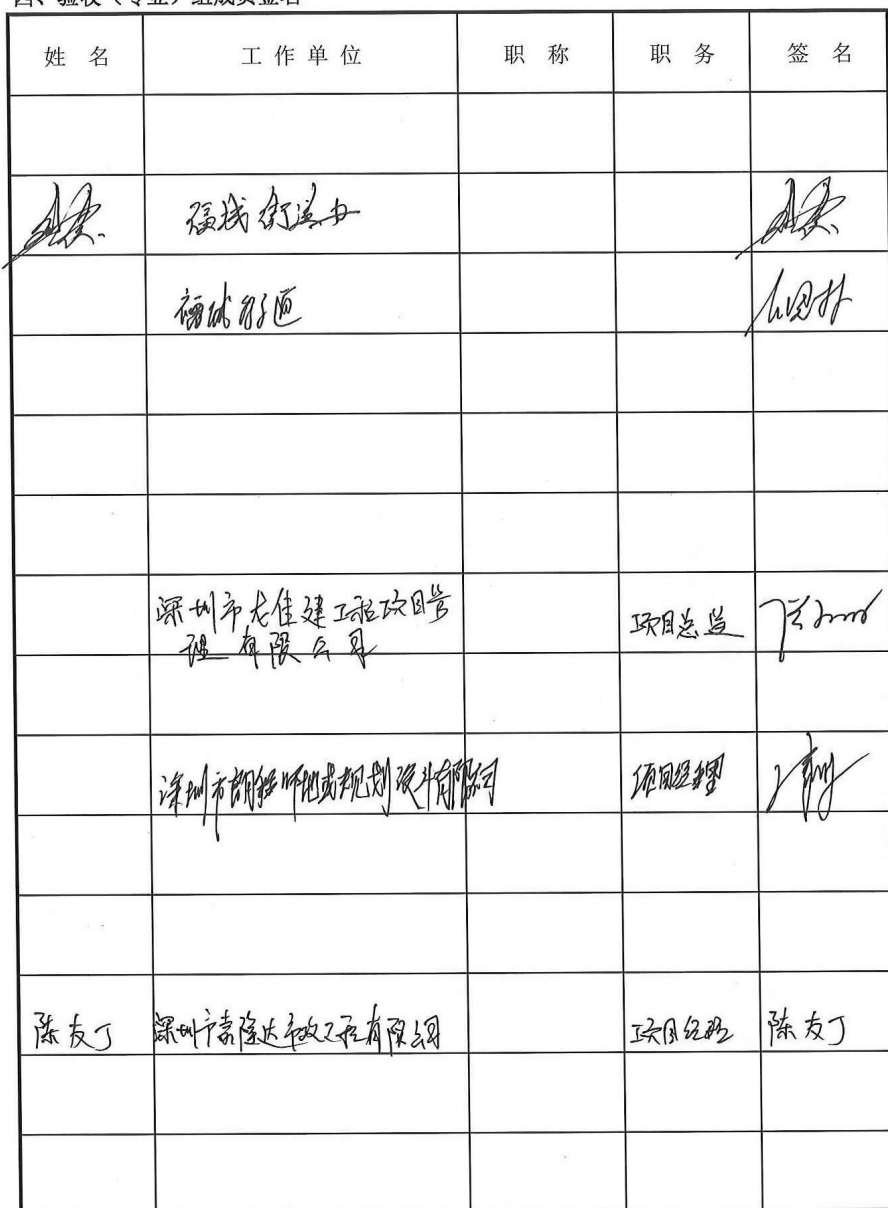 四、验收（专业）组成员签名
姓 名 工 作 单 位 职 称 职 务 签 名
福城街道办
福城街道
深圳市龙佳建工程项目管
理有限公司 项目总监
深圳市 规划设计有限公司 项目经理
陈友丁 深圳市嘉隆达市政工程有限公司 项目经理 陈友丁